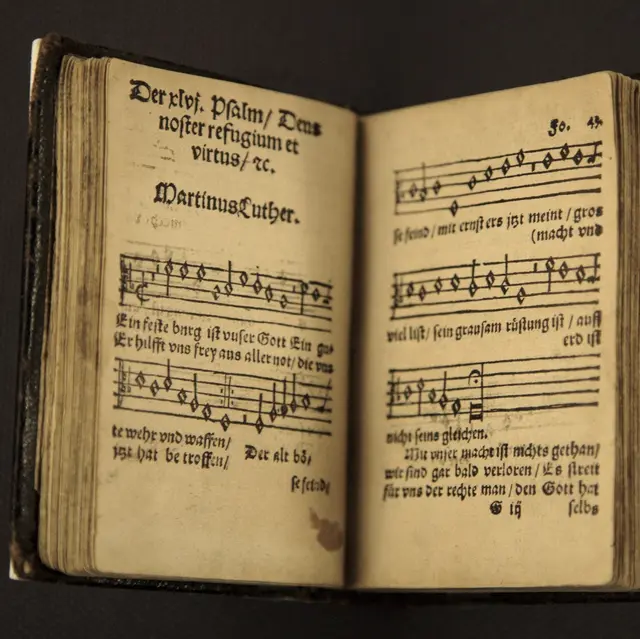 Der xlvj. Psalm/ Deus
noster refugium et
virtus/ ꝛc.
Martinus Luther.
Ein feste burg ist vnser Gott Ein gu-
Er hilfft vns frey aus aller not/ die vns
te wehr vnd waffen/
jtzt hat be troffen/ Der alt bö-
se feind/
Fo. 43.
se feind/ mit ernst ers jtzt meint/ gros
(macht vnd
viel list/ sein grausam rüstung ist/ auff
erd ist
nicht seins gleichen.
Mit vnser macht ist nichts gethan/
wir sind gar bald verloren/ Es streit
für vns der rechte man/ den Gott hat
G iij selbs